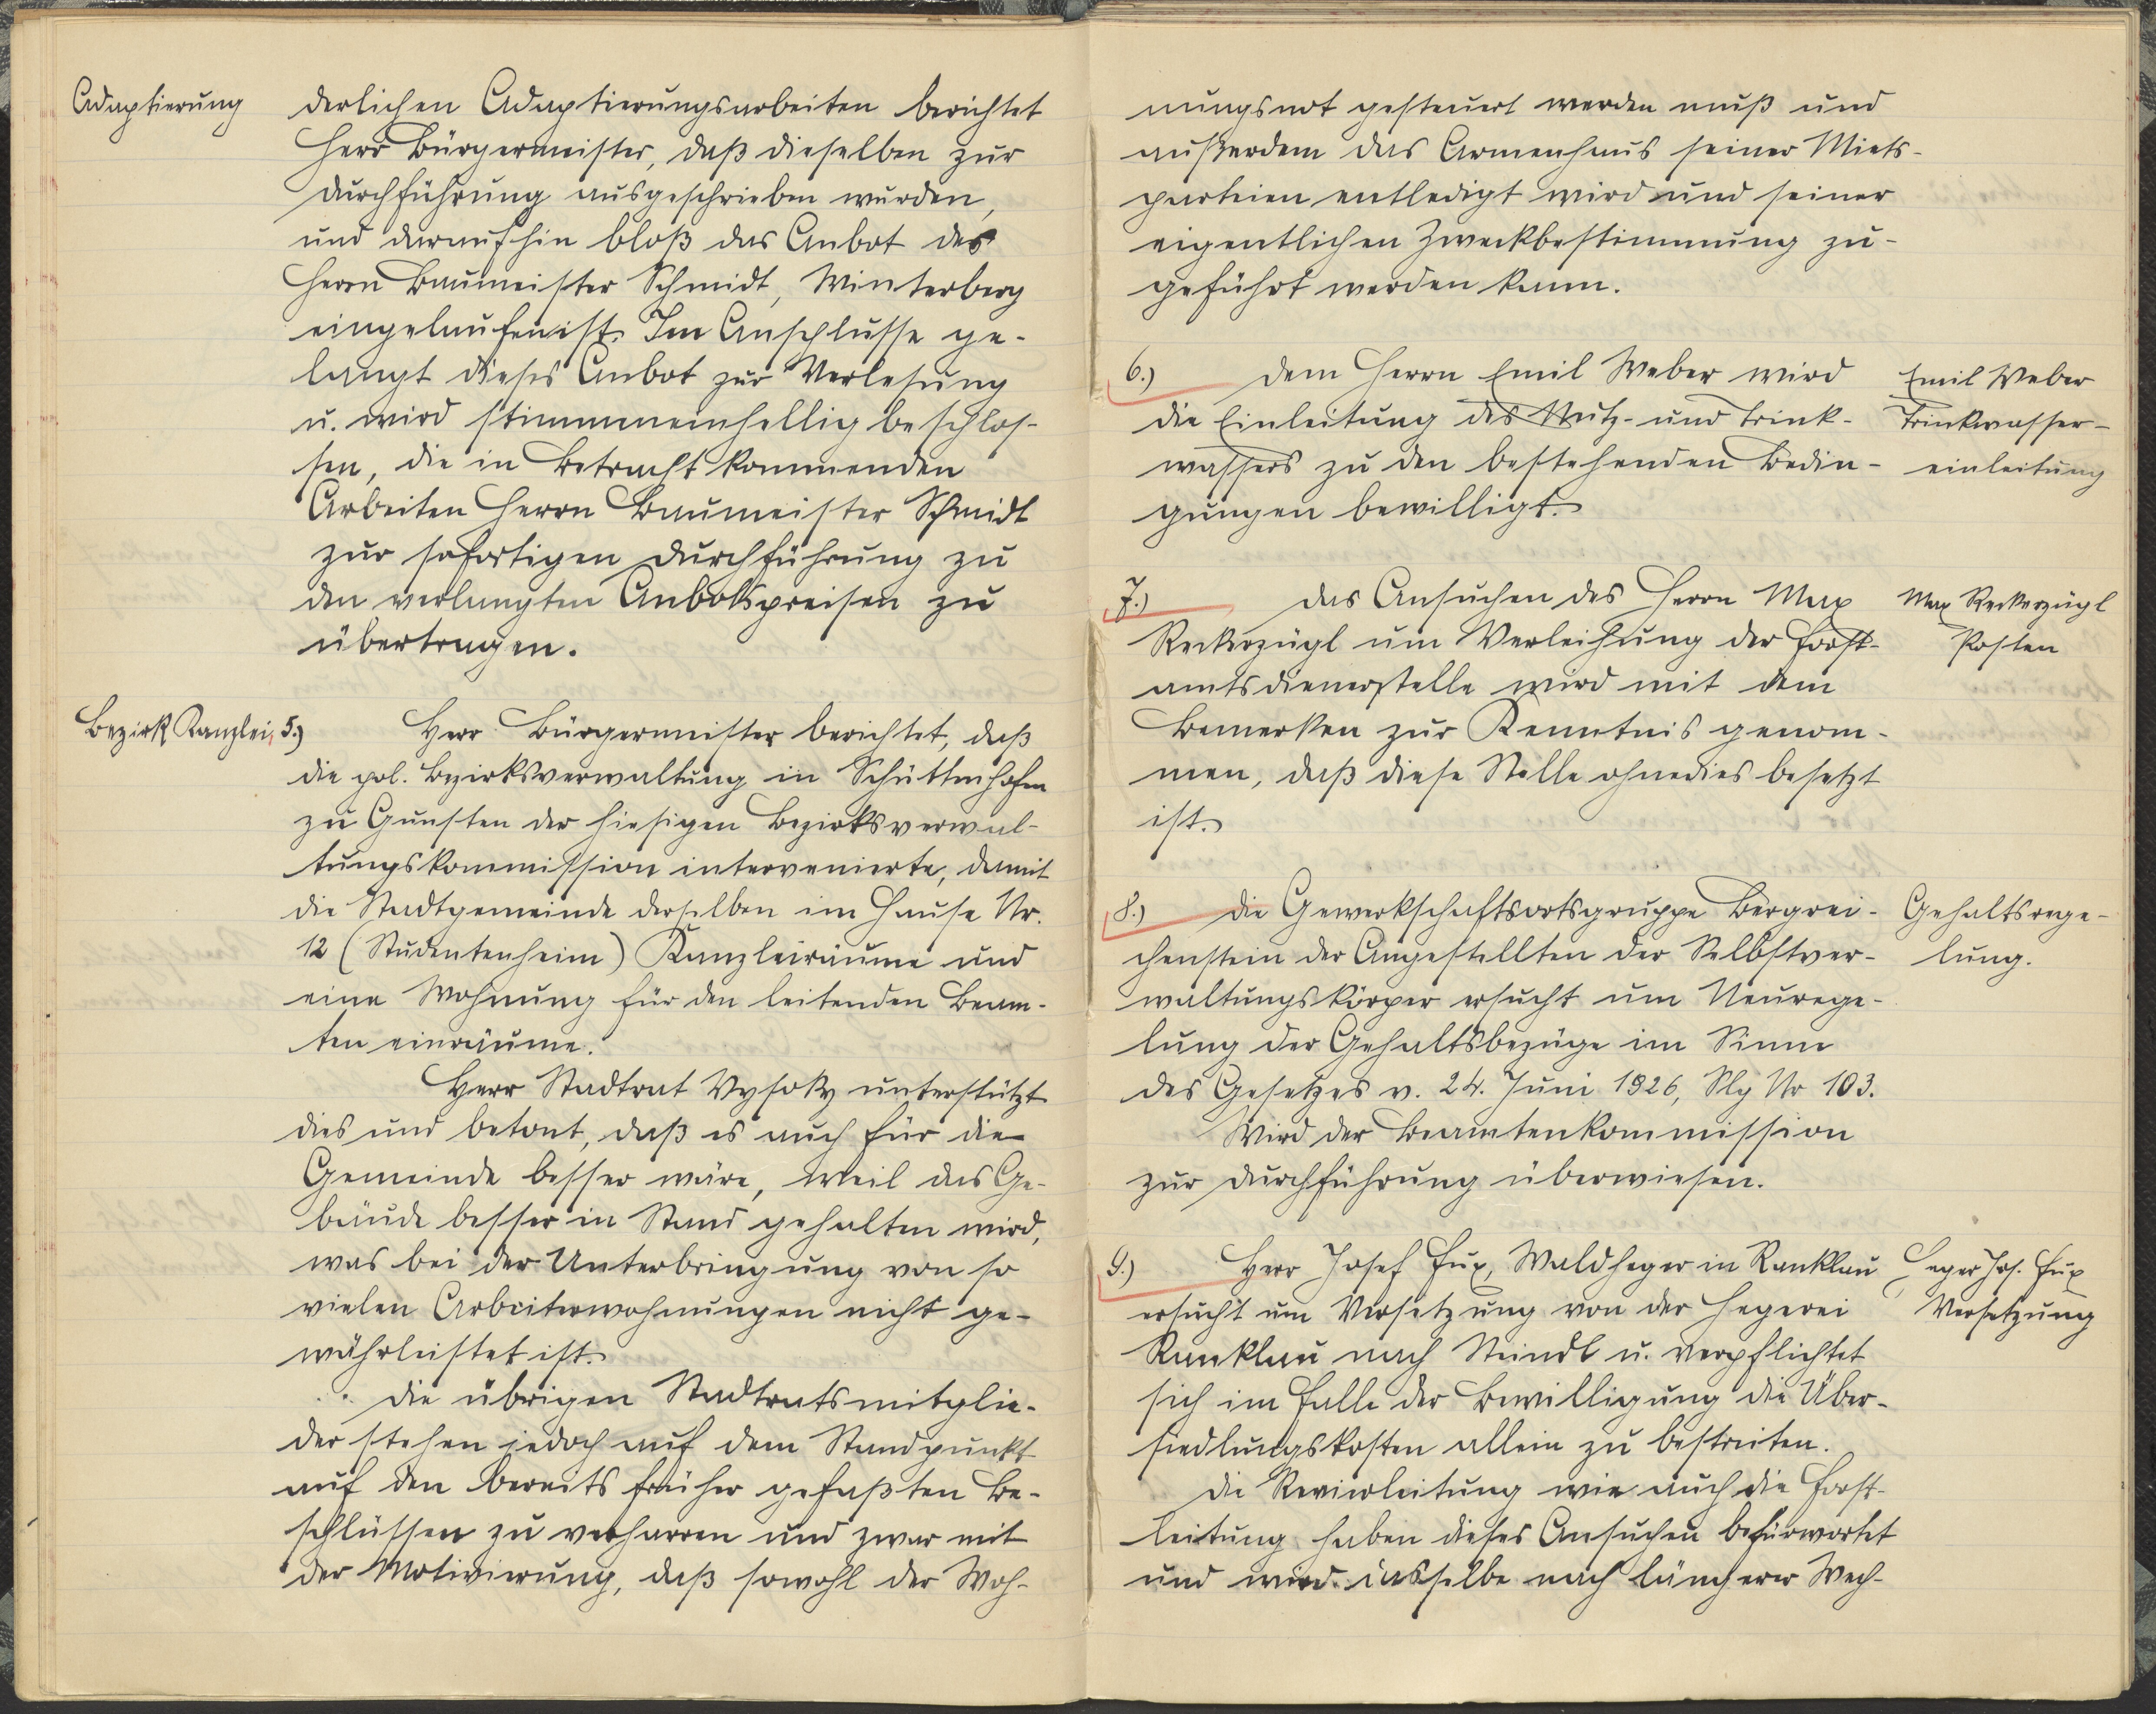 Adaptierung
derlichen Adaptierungsarbeiten berichtet
Herr Bürgermeister, daß dieselben zur
Durchführung ausgeschrieben wurden,
und daraufhin bloß das Anbot des
Herrn Baumeister Schmidt, Winterberg
eingelaufen ist. Im Anschlusse ge-
langt dieses Anbot zur Verlesung
u. wird stimmeneinhellig beschlos-
sen, die in Betracht kommenden
Arbeiten Herrn Baumeister Schmidt
zur sofortigen Durchführung zu
den verlangten Anbotspreisen zu
übertragen.
Bezirk Kanzlei
5.) Herr Bürgermeister berichtet, daß
die pol. Bezirksverwaltung in Schüttenhofen
zu Gunsten der hiesigen Bezirksverwal-
tungskommission intervenierte, damit
die Stadtgemeinde derselben im Hause Nr.
12 (Studentenheim) Kanzleiräume und
eine Wohnung für den leitenden Beam-
ten einräume.
Herr Stadtrat Vysoky unterstützt
dies und betont, daß es auch für die
Gemeinde besser wäre, weil das Ge-
bäude besser in Stand gehalten wird,
was bei der Unterbringung von so
vielen Arbeiterwohnungen nicht ge-
währleistet ist.
Die übrigen Stadtratsmitglie-
der stehen jedoch auf dem Standpunkt
auf den bereits früher gefaßten Be-
schlüssen zu verharren und zwar mit
der Motivierung, daß sowohl der Woh-
nungsnot gesteuert werden muß und
außerdem das Armenhaus seiner Miets-
parteien entledigt wird und seiner
eigentlichen Zweckbestimmung zu-
geführt werden kann.
6.) Dem Herrn Emil Weber wird
die Einleitung des Nutz- und Trink-
wassers zu den bestehenden Bedin-
gungen bewilligt.
Emil Weber
Trinkwasser-
einleitung
7.) Das Ansuchen des Herrn Max
Reckerzügl um Verleihung der Forst-
amtsdienerstelle wird mit dem
Bemerken zur Kenntnis genom-
men, daß diese Stelle ohnedies besetzt
ist.
Max Reckerzügl
Posten
8.) Die Gewerkschaftsortsgruppe Bergrei-
chenstein der Angestellten der Selbstver-
waltungskörper ersucht um Neurege-
lung der Gehaltsbezüge im Sinne
des Gesetzes v. 24. Juni 1926, Slg Nr 103.
Wird der Beamtenkommission
zur Durchführung überwiesen.
Gehaltsrege-
lung.
9.) Herr Josef Fux, Waldheger in Ranklau
ersucht um Versetzung von der Hegerei
Ranklau nach Steindl u. verpflichtet
sich im Falle der Bewilligung die Über-
siedlungskosten allein zu bestreiten.
Die Revierleitung wie auch die Forst-
leitung haben dieses Ansuchen befürwortet
und wird dasselbe nach längerer Wech-
Heger Jos. Fux
Versetzung